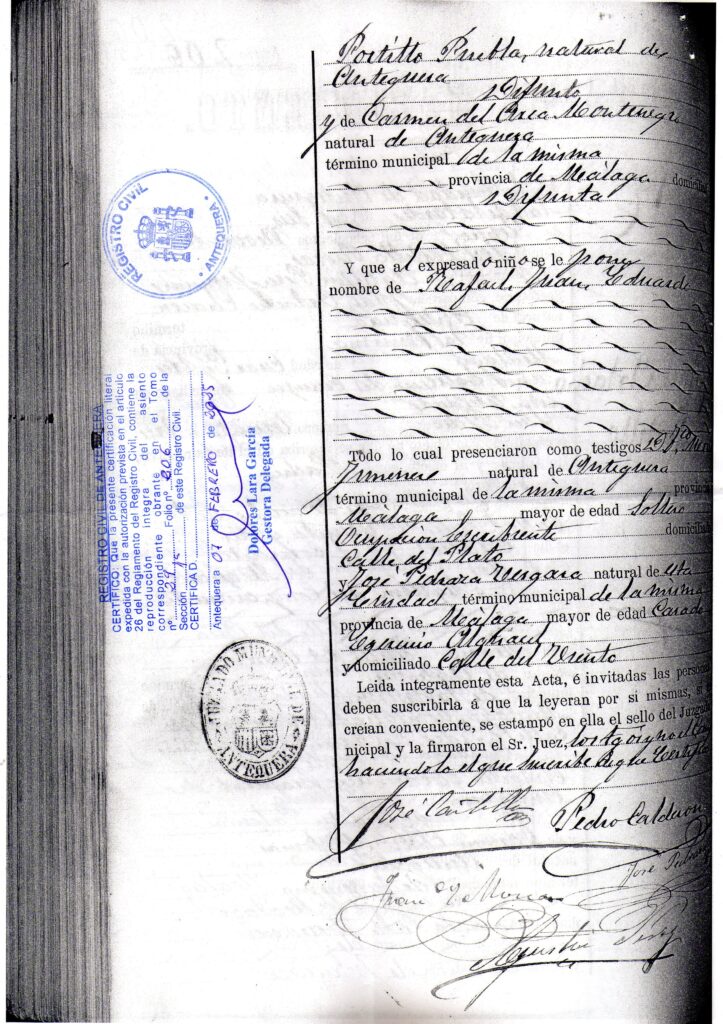 Portillo Puebla, natural de
Antequera
Difunto
y de Carmen del Arca Montenegro
natural de Antequera
término municipal de la misma
provincia de Málaga domicilia
Difunta
Y que al expresado niño se le pone
nombre de Rafael, Juan, Eduardo
Todo lo cual presenciaron como testigos
Jimenez natural de Antequera
término municipal de la misma provincia
Málaga mayor de edad Soltero
Ocupacion Escribiente domicilia
Calle del Plato
y José Pedraza Vergara natural de esta
término municipal de la misma
provincia de Málaga mayor de edad Casado
Egercicio
y domiciliado Calle del Viento
Leida integramente esta Acta, é invitadas las personas
deben suscribirla á que la leyeran por si mismas, si
creian conveniente, se estampó en ella el sello del Juzgado
nicipal y la firmaron el Sr. Juez, los tgos y no el
haciendolo el que suscribe
José Castilla
Pedro Calderon
José Pedraza
Juan
Agustin
REGISTRO CIVIL
· ANTEQUERA ·
REGISTRO CIVIL DE ANTEQUERA
CERTIFICO: Que la presente certificación literal
expedida con la autorización prevista en el artículo
26 del Reglamento del Registro Civil, contiene la
reproducción integra del asiento
correspondiente obrante en el Tomo
nº Folio nº 206 de la
Sección de este Registro Civil.
CERTIFICA D.
Antequera a 07 de FEBRERO de
Dolores Lara García
Gestora Delegada
JUZGADO MUNICIPAL DE
ANTEQUERA